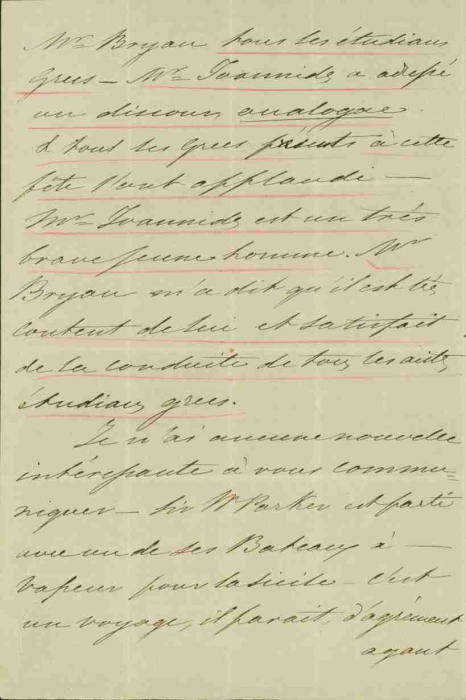 Mr Bryan tous les étudians
Grecs — Mr Ioannides a adressé
un discours analogue
& tous les Grecs présents à cette
fête l'ont applaudi —
Mr Ioannides est un très
brave jeune homme. Mr
Bryan m'a dit qu'il est très
content de lui et satisfait
de la conduite de tous les
étudians grecs.
Je n'ai aucune nouvelle
intéressante à vous commu=
niquer — Sir W Parker est parti
avec un de ses Bateaux à —
vapeur pour la Sicile — c'est
un voyage, il parait, d'agrément
ayant